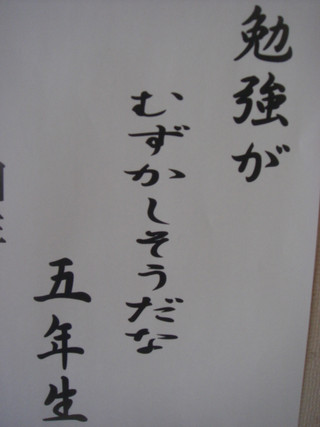 勉強が
むずかしそうだな
五年生